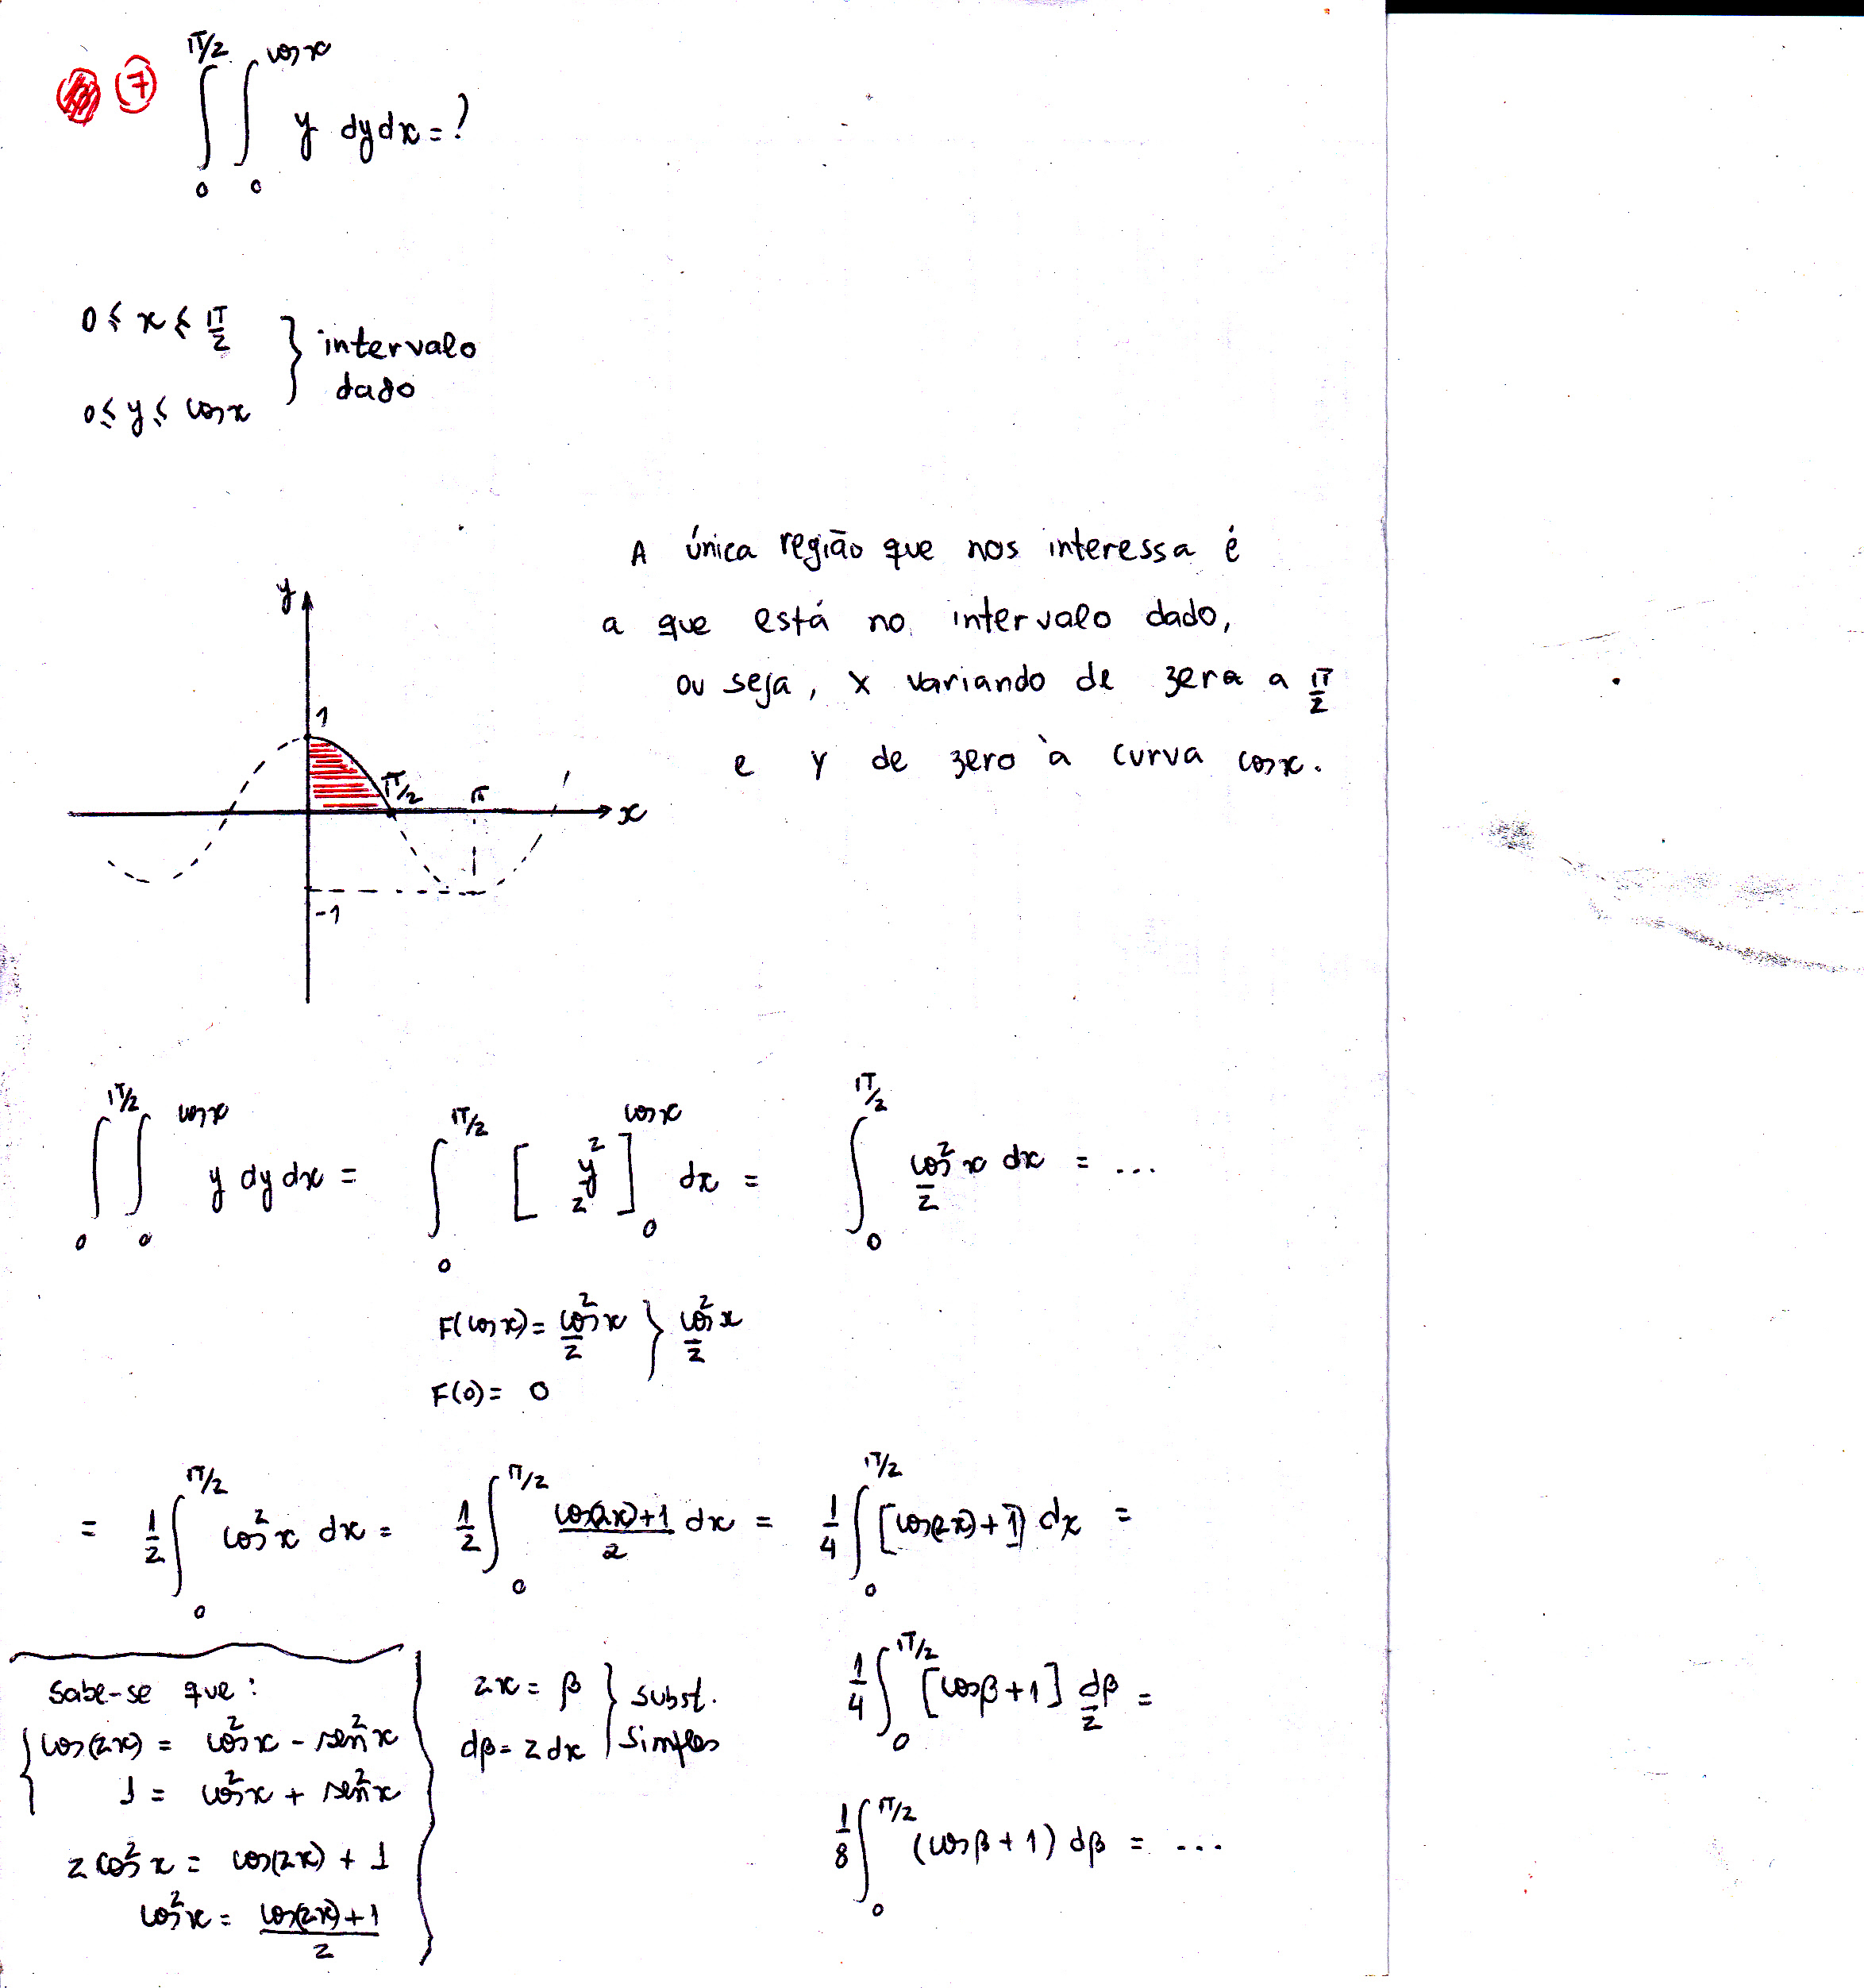 7 ∫₀^{π/2} ∫₀^{cos x} y dy dx = ?
0 ≤ x ≤ π/2
0 ≤ y ≤ cos x } intervalo dado
A única região que nos interessa é
a que está no intervalo dado,
ou seja, x variando de zero a π/2
e y de zero à curva cos x.
y
1
π/2 π
x
-1
∫₀^{π/2} ∫₀^{cos x} y dy dx = ∫₀^{π/2} [y²/2]₀^{cos x} dx = ∫₀^{π/2} cos²x/2 dx = ...
F(cos x) = cos²x/2 } cos²x/2
F(0) = 0
= 1/2 ∫₀^{π/2} cos²x dx = 1/2 ∫₀^{π/2} (cos(2x)+1)/2 dx = 1/4 ∫₀^{π/2} [cos(2x)+1] dx =
Sabe-se que:
cos(2x) = cos²x - sen²x
1 = cos²x + sen²x
2cos²x = cos(2x) + 1
cos²x = (cos(2x)+1)/2
2x = β
dβ = 2dx } subst. simples
1/4 ∫₀^{π/2} [cosβ+1] dβ/2 =
1/8 ∫₀^{π/2} (cosβ+1) dβ = ...